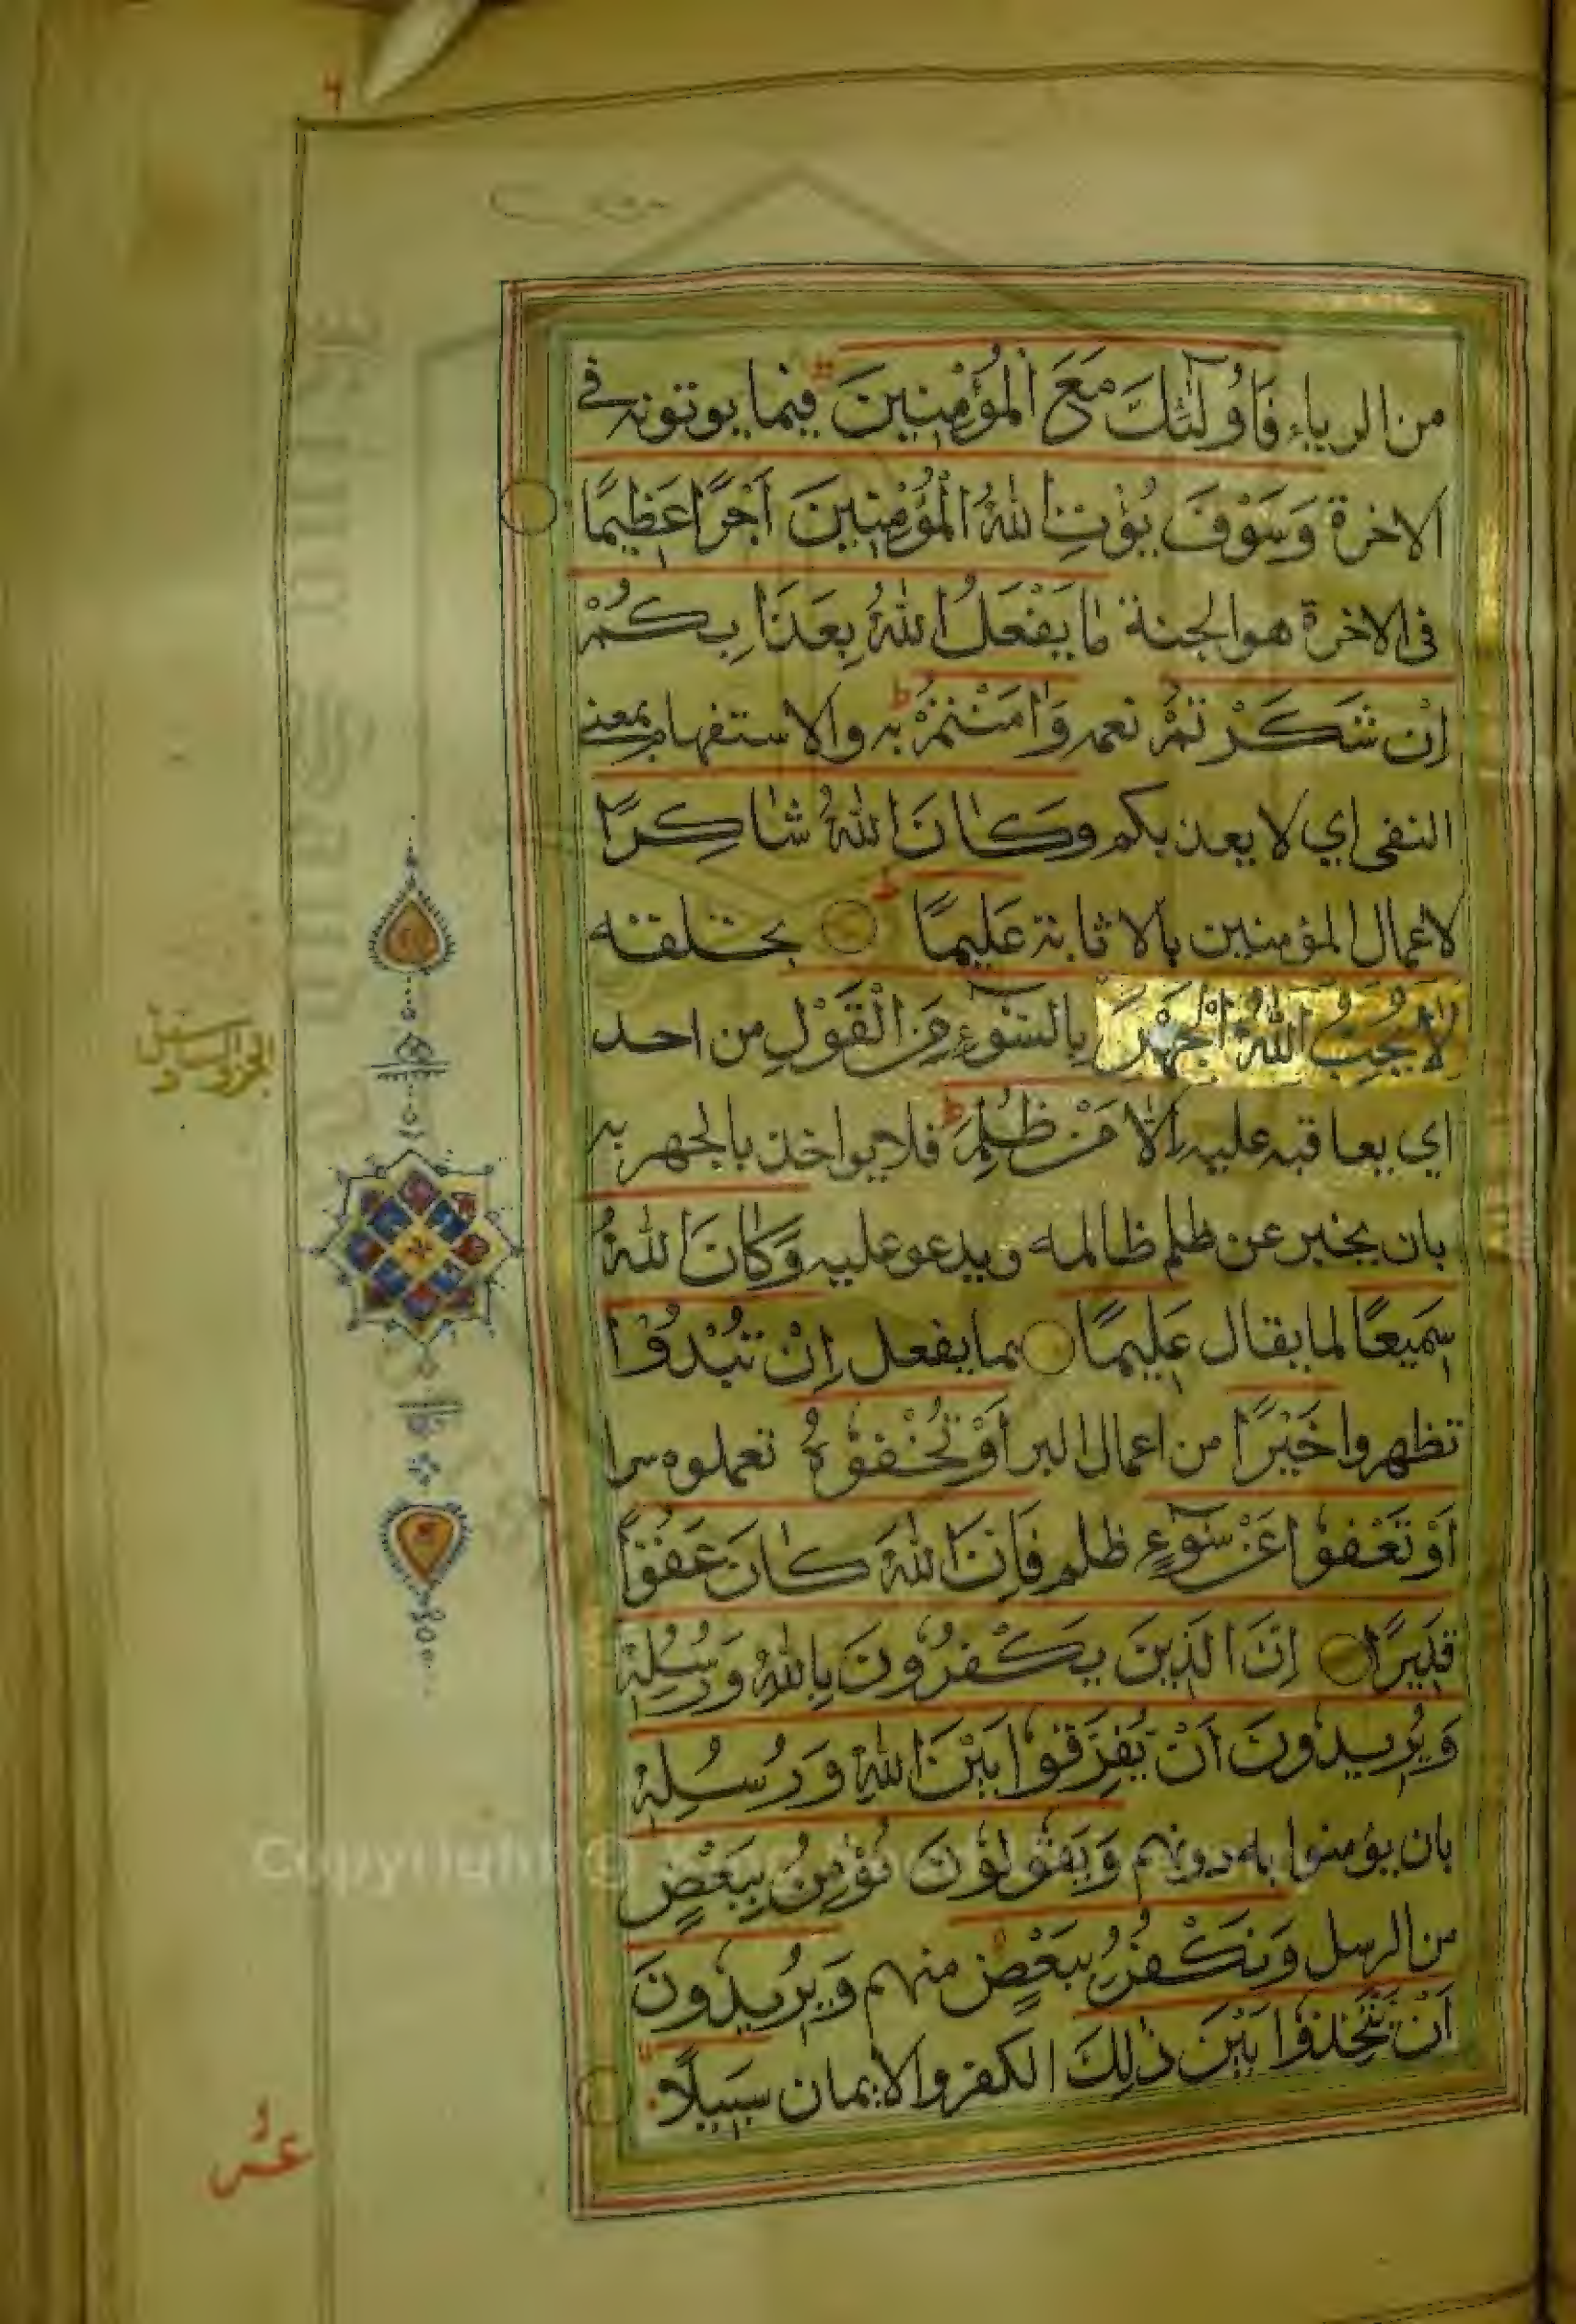 من الرياء فَأُولَٰئِكَ مَعَ الْمُؤْمِنِينَ فيما يوتونه في
الاخرة وَسَوْفَ يُؤْتِ اللهُ الْمُؤْمِنِينَ اَجْرًا عَظِيمًا
في الاخرة هو الجنة مَا يَفْعَلُ اللهُ بِعَذَابِكُمْ
اِنْ شَكَرْتُمْ نعمه وَاٰمَنْتُمْ به والاستفهام بمعنى
النفى اي لا يعذبكم وَكَانَ اللهُ شَاكِرًا
لاعمال المؤمنين بالاثابة عَلِيمًا بخلقه
لَا يُحِبُّ اللهُ الْجَهْرَ بِالسُّوٓءِ مِنَ الْقَوْلِ من احد
الجزو السادس
اي يعاقبه عليه اِلَّا مَنْ ظُلِمَ فلا يواخذ بالجهر به
بان يخبر عن ظلم ظالمه ويدعو عليه وَكَانَ اللهُ
سَمِيعًا لما يقال عَلِيمًا بما يفعل اِنْ تُبْدُوْا
تظهروا خَيْرًا من اعمال البر اَوْ تُخْفُوْهُ تعملوه سرا
اَوْ تَعْفُوْا عَنْ سُوٓءٍ ظلم فَاِنَّ اللهَ كَانَ عَفُوًّا
قَدِيرًا اِنَّ الَّذِينَ يَكْفُرُونَ بِاللهِ وَرُسُلِهِ
وَيُرِيدُونَ اَنْ يُفَرِّقُوا بَيْنَ اللهِ وَرُسُلِهِ
بان يؤمنوا به دونهم وَيَقُولُوْنَ نُؤْمِنُ بِبَعْضٍ
من الرسل وَنَكْفُرُ بِبَعْضٍ منهم وَيُرِيدُونَ
اَنْ يَتَّخِذُوْا بَيْنَ ذٰلِكَ الكفر والايمان سَبِيلًا
Copyright ©